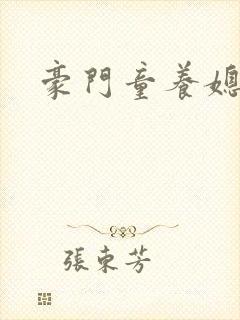 豪門童養媳
張東芳